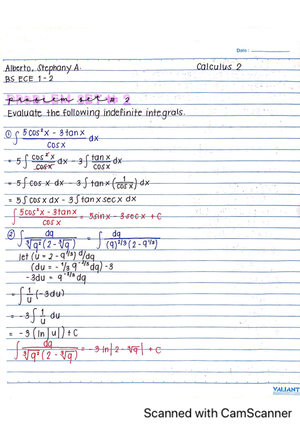 Date :
Alberto, Stephany A.
Calculus 2
BS ECE 1 - 2
problem set # 2
Evaluate the following indefinite integrals.
① ∫ (5cos²x - 3tanx)/cosx dx
= 5∫ cos²x/cosx dx - 3∫ tanx/cosx dx
= 5∫ cos x dx - 3∫ tanx (1/cosx) dx
= 5∫ cosx dx - 3∫ tanx secx dx
∫ (5cos²x - 3tanx)/cosx = 5sinx - 3secx + C
② ∫ dq/(∛q²(2 - ∛q)) = ∫ dq/((q)^2/3 (2 - q^1/3))
let (u = 2 - q^1/3) d/dq
(du = -1/3 q^-2/3 dq) -3
-3du = q^-2/3 dq
= ∫ 1/u (-3du)
= -3∫ 1/u du
= -3 (ln|u|) + C
∫ dq/(∛q²(2 - ∛q)) = -3 ln|2 - ∛q| + C
VALIANT
Scanned with CamScanner